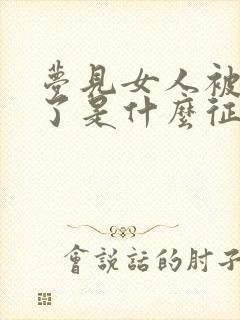 夢見女人被
了是什麼征
會說話的肘子